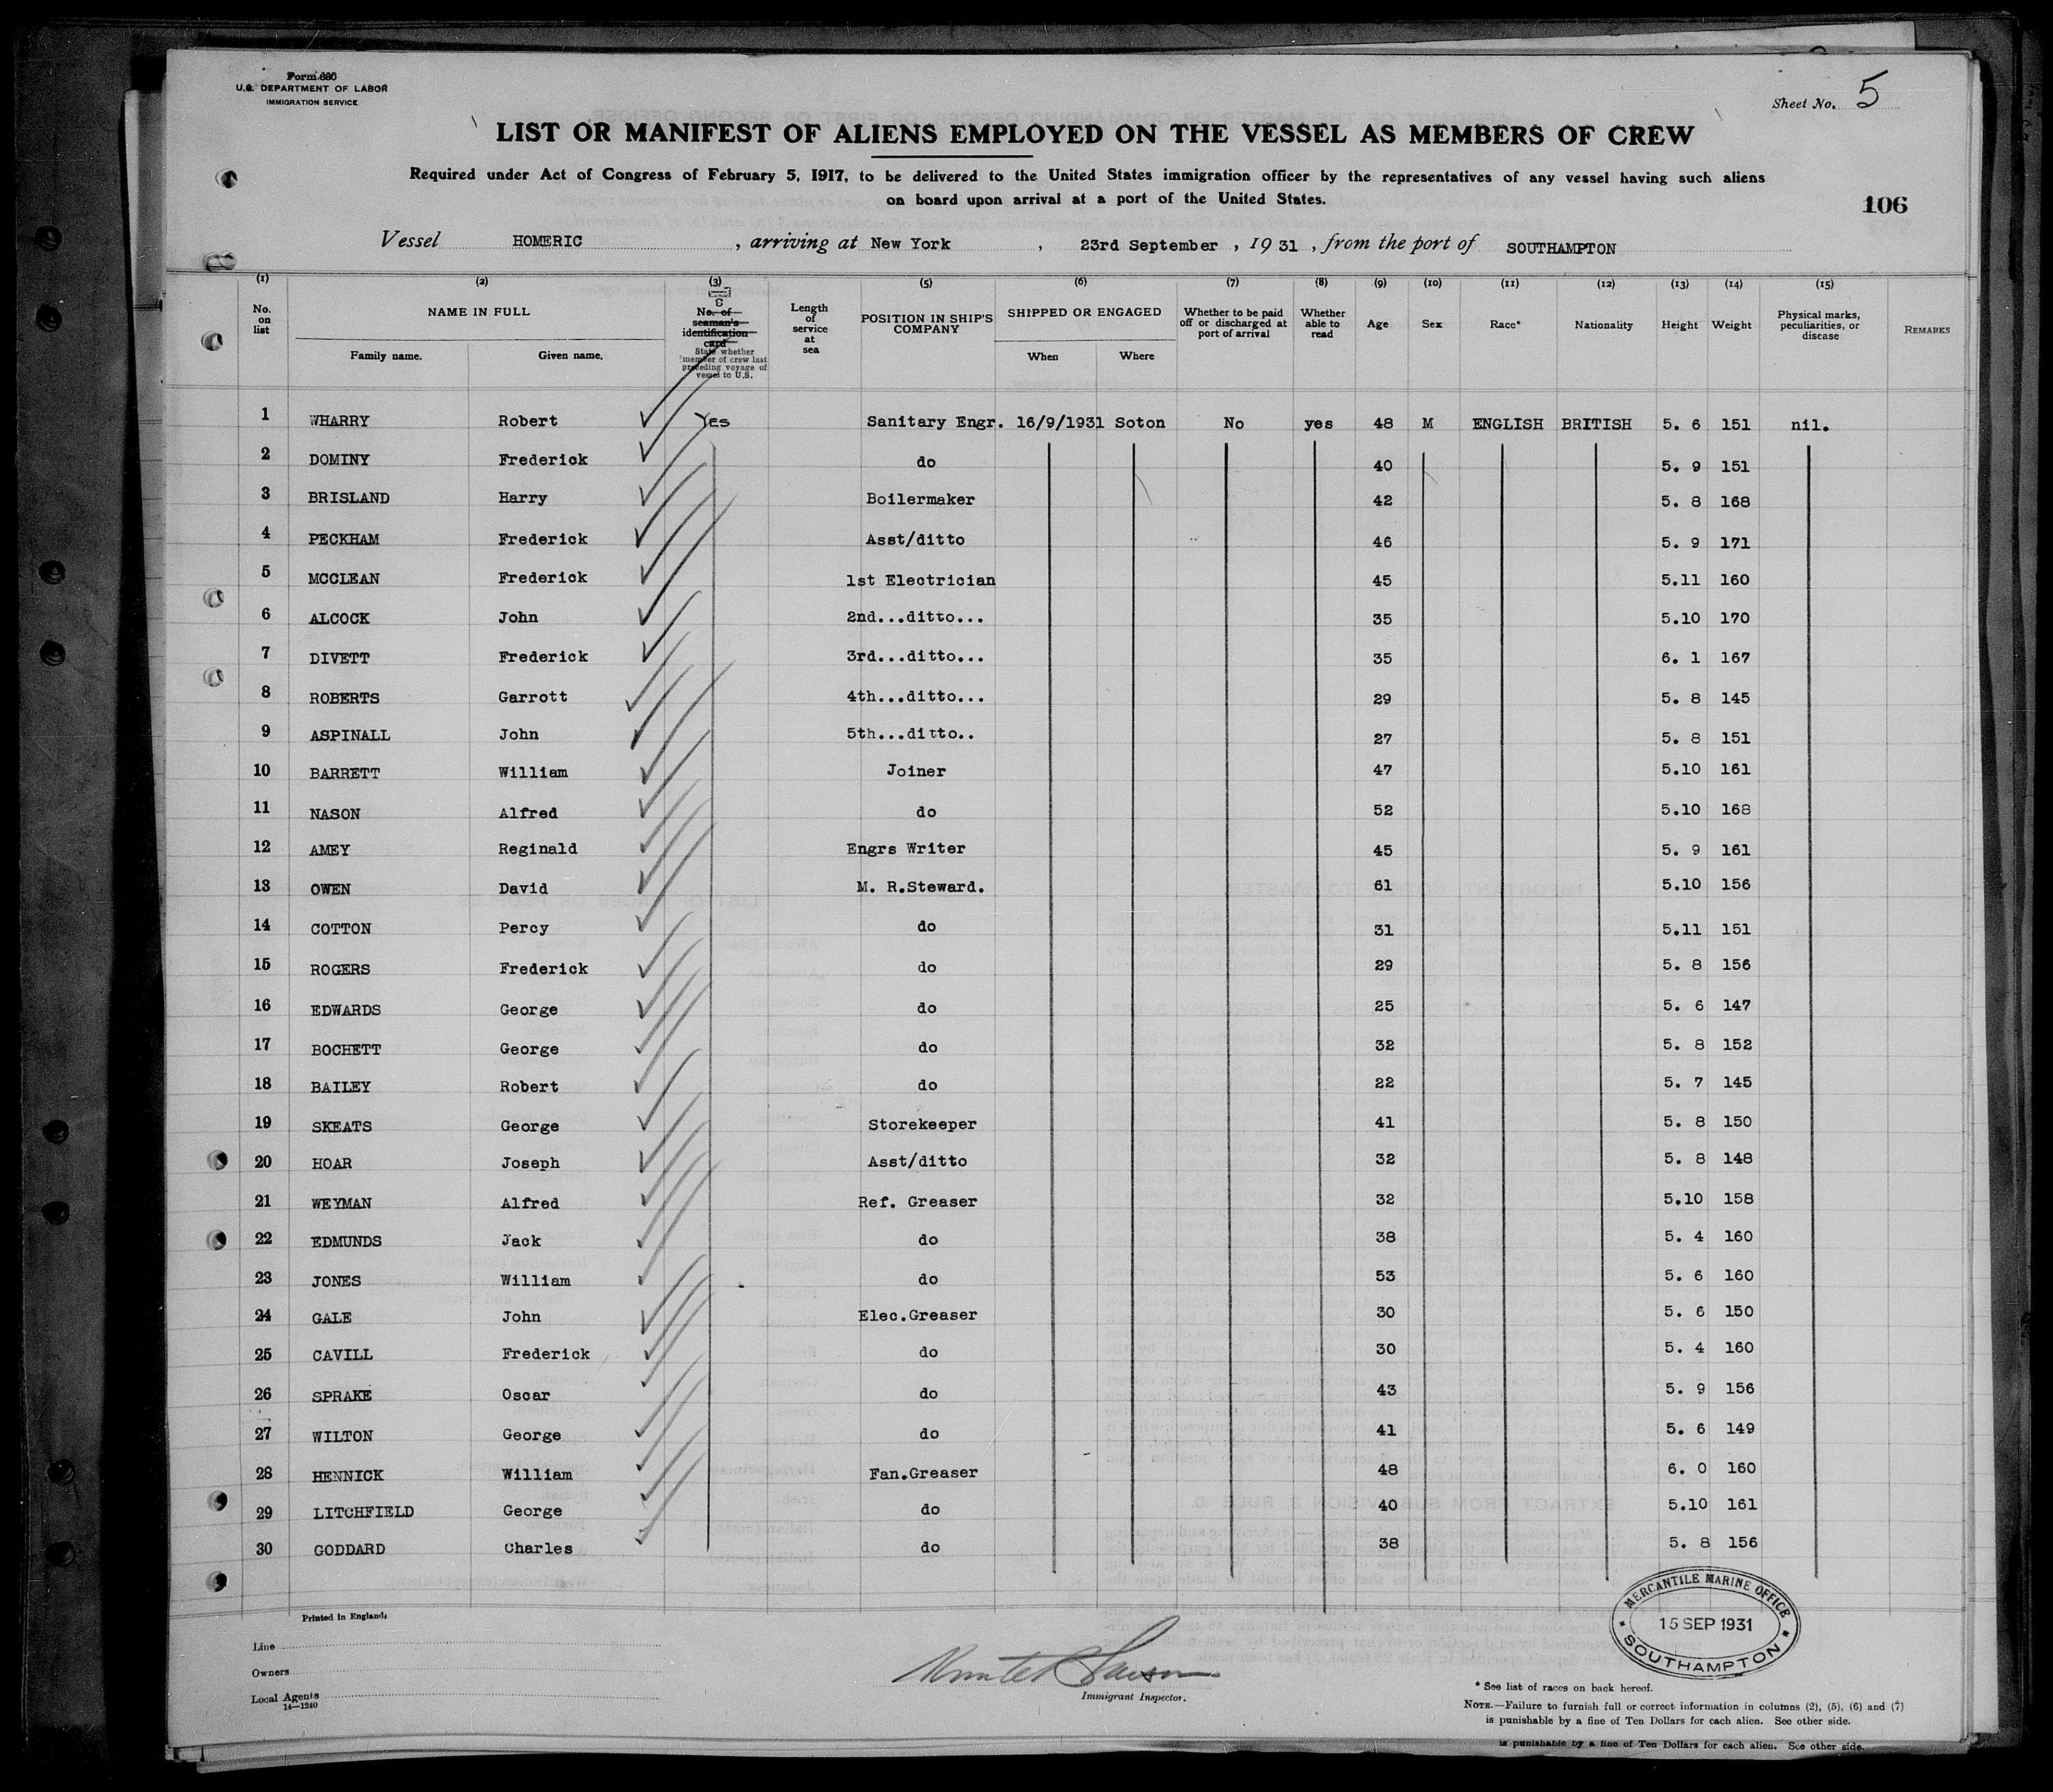 Form 680
U.S. DEPARTMENT OF LABOR
IMMIGRATION SERVICE
Sheet No. 5
LIST OR MANIFEST OF ALIENS EMPLOYED ON THE VESSEL AS MEMBERS OF CREW
Required under Act of Congress of February 5, 1917, to be delivered to the United States immigration officer by the representatives of any vessel having such aliens
on board upon arrival at a port of the United States.
106
Vessel HOMERIC, arriving at New York, 23rd September, 1931, from the port of SOUTHAMPTON
(1) (2) (3) (5) (6) (7) (8) (9) (10) (11) (12) (13) (14) (15)
No. on list NAME IN FULL Family name. Given name. No. of seaman's identification card State whether member of crew last preceding voyage of vessel to U.S. Length of service at sea POSITION IN SHIP'S COMPANY SHIPPED OR ENGAGED When Where Whether to be paid off or discharged at port of arrival Whether able to read Age Sex Race* Nationality Height Weight Physical marks, peculiarities, or disease REMARKS
1 WHARRY Robert Yes Sanitary Engr. 16/9/1931 Soton No yes 48 M ENGLISH BRITISH 5. 6 151 nil.
2 DOMINY Frederick do 40 5. 9 151
3 BRISLAND Harry Boilermaker 42 5. 8 168
4 PECKHAM Frederick Asst/ditto 46 5. 9 171
5 MCCLEAN Frederick 1st Electrician 45 5.11 160
6 ALCOCK John 2nd...ditto... 35 5.10 170
7 DIVETT Frederick 3rd...ditto... 35 6. 1 167
8 ROBERTS Garrott 4th...ditto... 29 5. 8 145
9 ASPINALL John 5th...ditto.. 27 5. 8 151
10 BARRETT William Joiner 47 5.10 161
11 NASON Alfred do 52 5.10 168
12 AMEY Reginald Engrs Writer 45 5. 9 161
13 OWEN David M. R.Steward. 61 5.10 156
14 COTTON Percy do 31 5.11 151
15 ROGERS Frederick do 29 5. 8 156
16 EDWARDS George do 25 5. 6 147
17 BOCHETT George do 32 5. 8 152
18 BAILEY Robert do 22 5. 7 145
19 SKEATS George Storekeeper 41 5. 8 150
20 HOAR Joseph Asst/ditto 32 5. 8 148
21 WEYMAN Alfred Ref. Greaser 32 5.10 158
22 EDMUNDS Jack do 38 5. 4 160
23 JONES William do 53 5. 6 160
24 GALE John Elec.Greaser 30 5. 6 150
25 CAVILL Frederick do 30 5. 4 160
26 SPRAKE Oscar do 43 5. 9 156
27 WILTON George do 41 5. 6 149
28 HENNICK William Fan.Greaser 48 6. 0 160
29 LITCHFIELD George do 40 5.10 161
30 GODDARD Charles do 38 5. 8 156
Printed in England.
Line
Owners
Local Agents
14—1240
Immigrant Inspector.
MERCANTILE MARINE OFFICE
15 SEP 1931
SOUTHAMPTON
* See list of races on back hereof.
NOTE.—Failure to furnish full or correct information in columns (2), (5), (6) and (7)
is punishable by a fine of Ten Dollars for each alien. See other side.
is punishable by a fine of Ten Dollars for each alien. See other side.